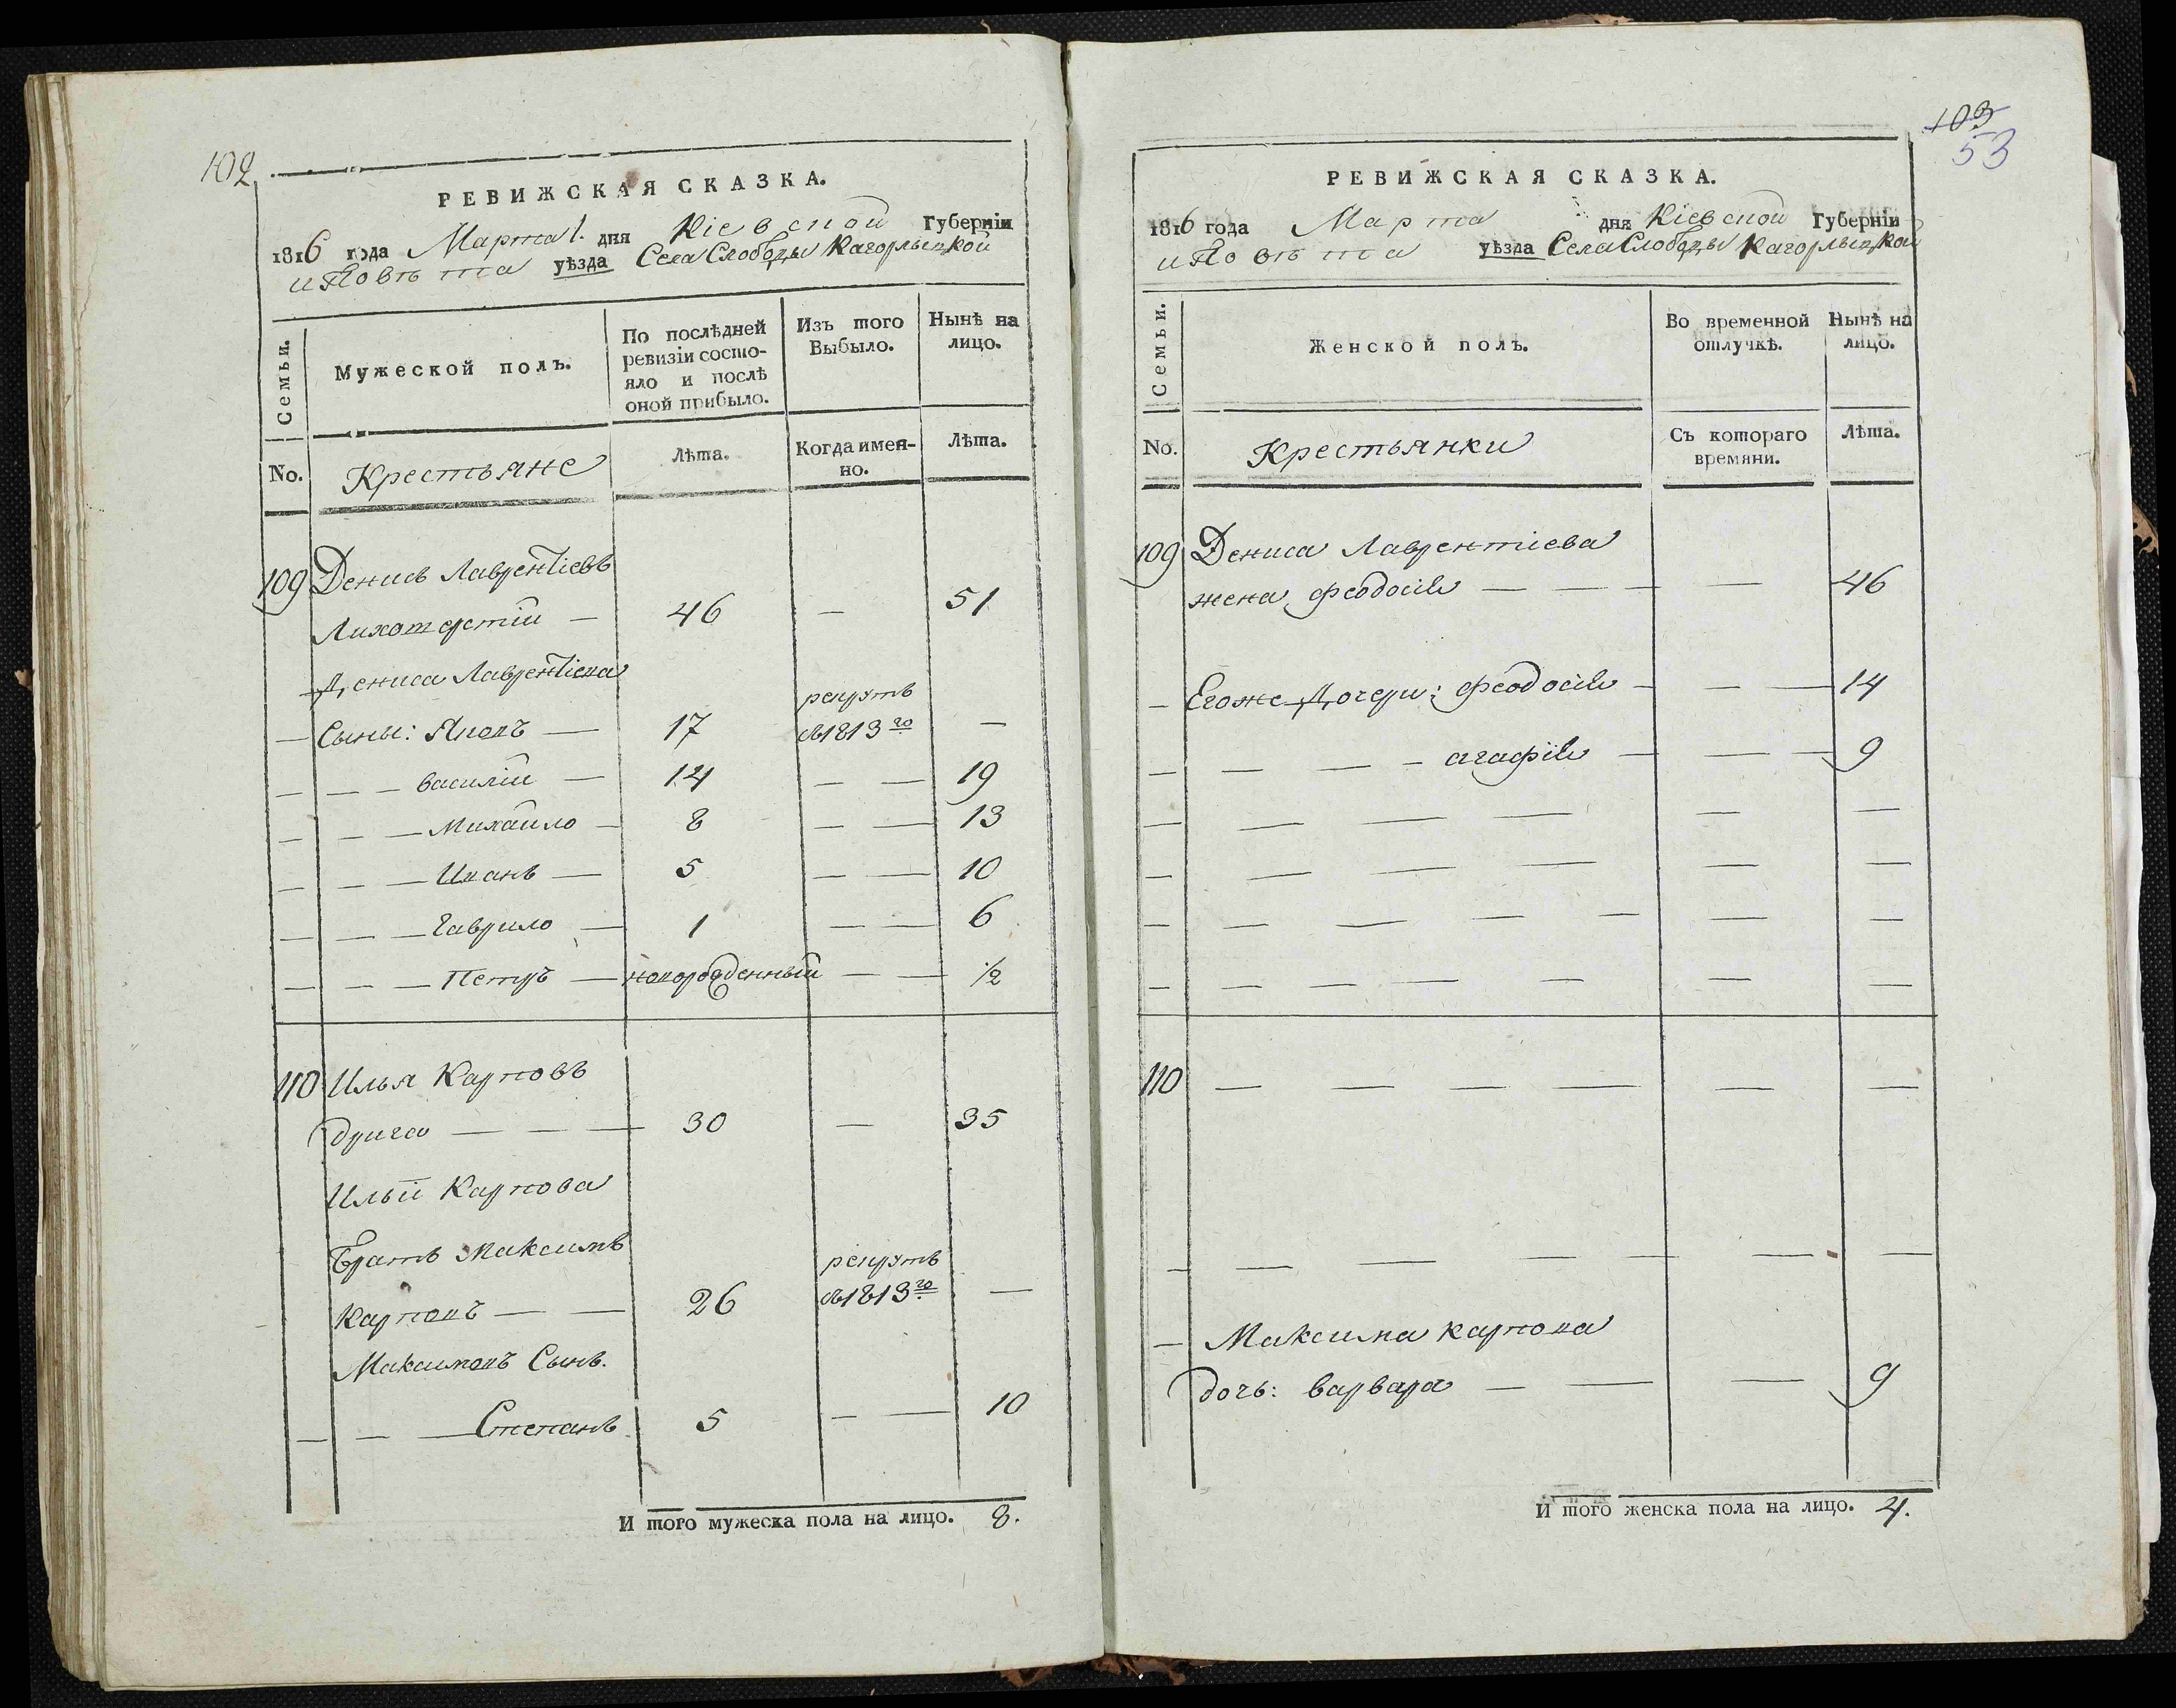 102
РЕВИЖСКАЯ СКАЗКА.
1816 года Марта 1. дня Кіевской Губерніи
и Повѣта уѣзда Села Слободы Кагорлыцкой
Семьи.
Мужеской полъ.
По послѣдней ревизіи состо-
яло и послѣ оной прибыло.
Изъ того Выбыло.
Нынѣ на лицо.
No.
Крестьяне
Лѣта.
Когда имен-
но.
Лѣта.
109 Денисъ Лаврентіевъ
46 — 51
Дениса Лаврентіева
рекрутъ
— Сыны: Яковъ — 17 въ 1813го —
— — — василій — 14 — — 19
— — — Михайло — 8 — — 13
— — — Иванъ — 5 — — 10
— — — Гаврило — 1 — — 6
— — — Петръ — новорожденный — — 1/2
110 Илья Карповъ
Дрига — — — 30 — 35
Ильи Карпова
Братъ Максимъ
рекрутъ
Карповъ — — 26 въ 1813го —
Максимовъ Сынъ.
— — — Степанъ 5 — — 10
И того мужеска пола на лицо. 8.
103
53
РЕВИЖСКАЯ СКАЗКА.
1816 года Марта дня Кіевской Губерніи
и Повѣта уѣзда Села Слободы Кагорлыцкой
Семьи.
Женской полъ.
Во временной отлучкѣ.
Нынѣ на лицо.
No.
Крестьянки
Съ котораго времяни.
Лѣта.
109 Дениса Лаврентіева
жена Феодосія — — — — 46
— Егоже Дочери: Феодосія — — — 14
— — — — агафія — — — 9
110 — — — — — —
— Максима карпова
дочь: варвара — — — 9
И того женска пола на лицо. 4.